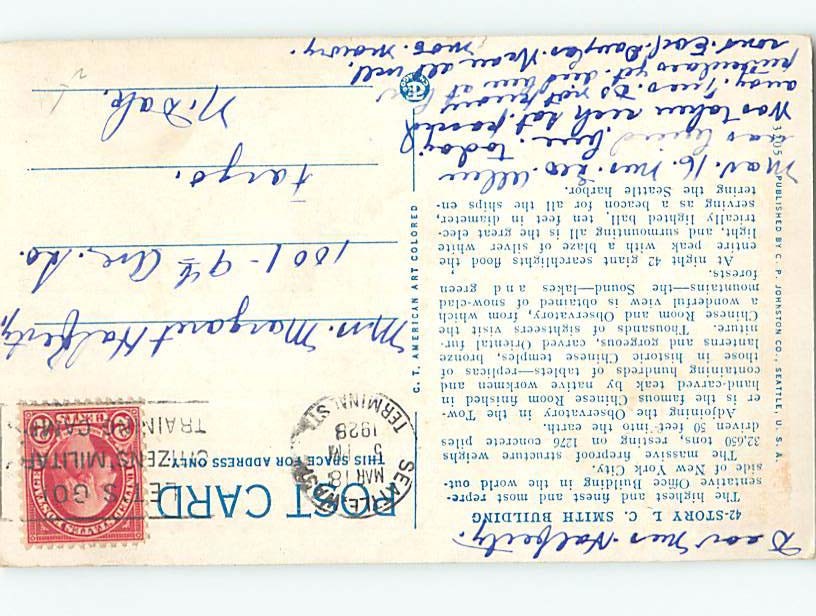 Dear Mrs. Halferty.
42-STORY L. C. SMITH BUILDING
The highest and finest and most repre-
sentative Office Building in the world out-
side of New York City.
The massive fireproof structure weighs
32,650 tons, resting on 1276 concrete piles
driven 50 feet into the earth.
Adjoining the Observatory in the Tow-
er is the famous Chinese Room finished in
hand-carved teak by native workmen and
containing hundreds of tablets—replicas of
those in historic Chinese temples, bronze
lanterns and gorgeous, carved Oriental fur-
niture. Thousands of sightseers visit the
Chinese Room and Observatory, from which
a wonderful view is obtained of snow-clad
mountains—the Sound—lakes and green
forests.
At night 42 giant searchlights flood the
entire peak with a blaze of silver white
light, and surmounting all is the great elec-
trically lighted ball, ten feet in diameter,
serving as a beacon for all the ships en-
tering the Seattle harbor.
Mar. 16. Mrs. Leo. Allen
was here. today.
was taken sick sat. passed
away. Do not know
yet.
sons. Earl. Douglas. all well.
Mrs. Mowry.
PUBLISHED BY C. P. JOHNSTON CO., SEATTLE, U. S. A.
C. T. AMERICAN ART COLORED
POST CARD
THIS SPACE FOR ADDRESS ONLY
SEATTLE
MAR 18
5 PM
1928
TERMINAL STA.
LET'S GO!
CITIZENS' MILITARY
TRAINING CAMP
Mrs. Margaret Halferty,
1001 - 9th Ave. So.
Fargo.
N. Dak.